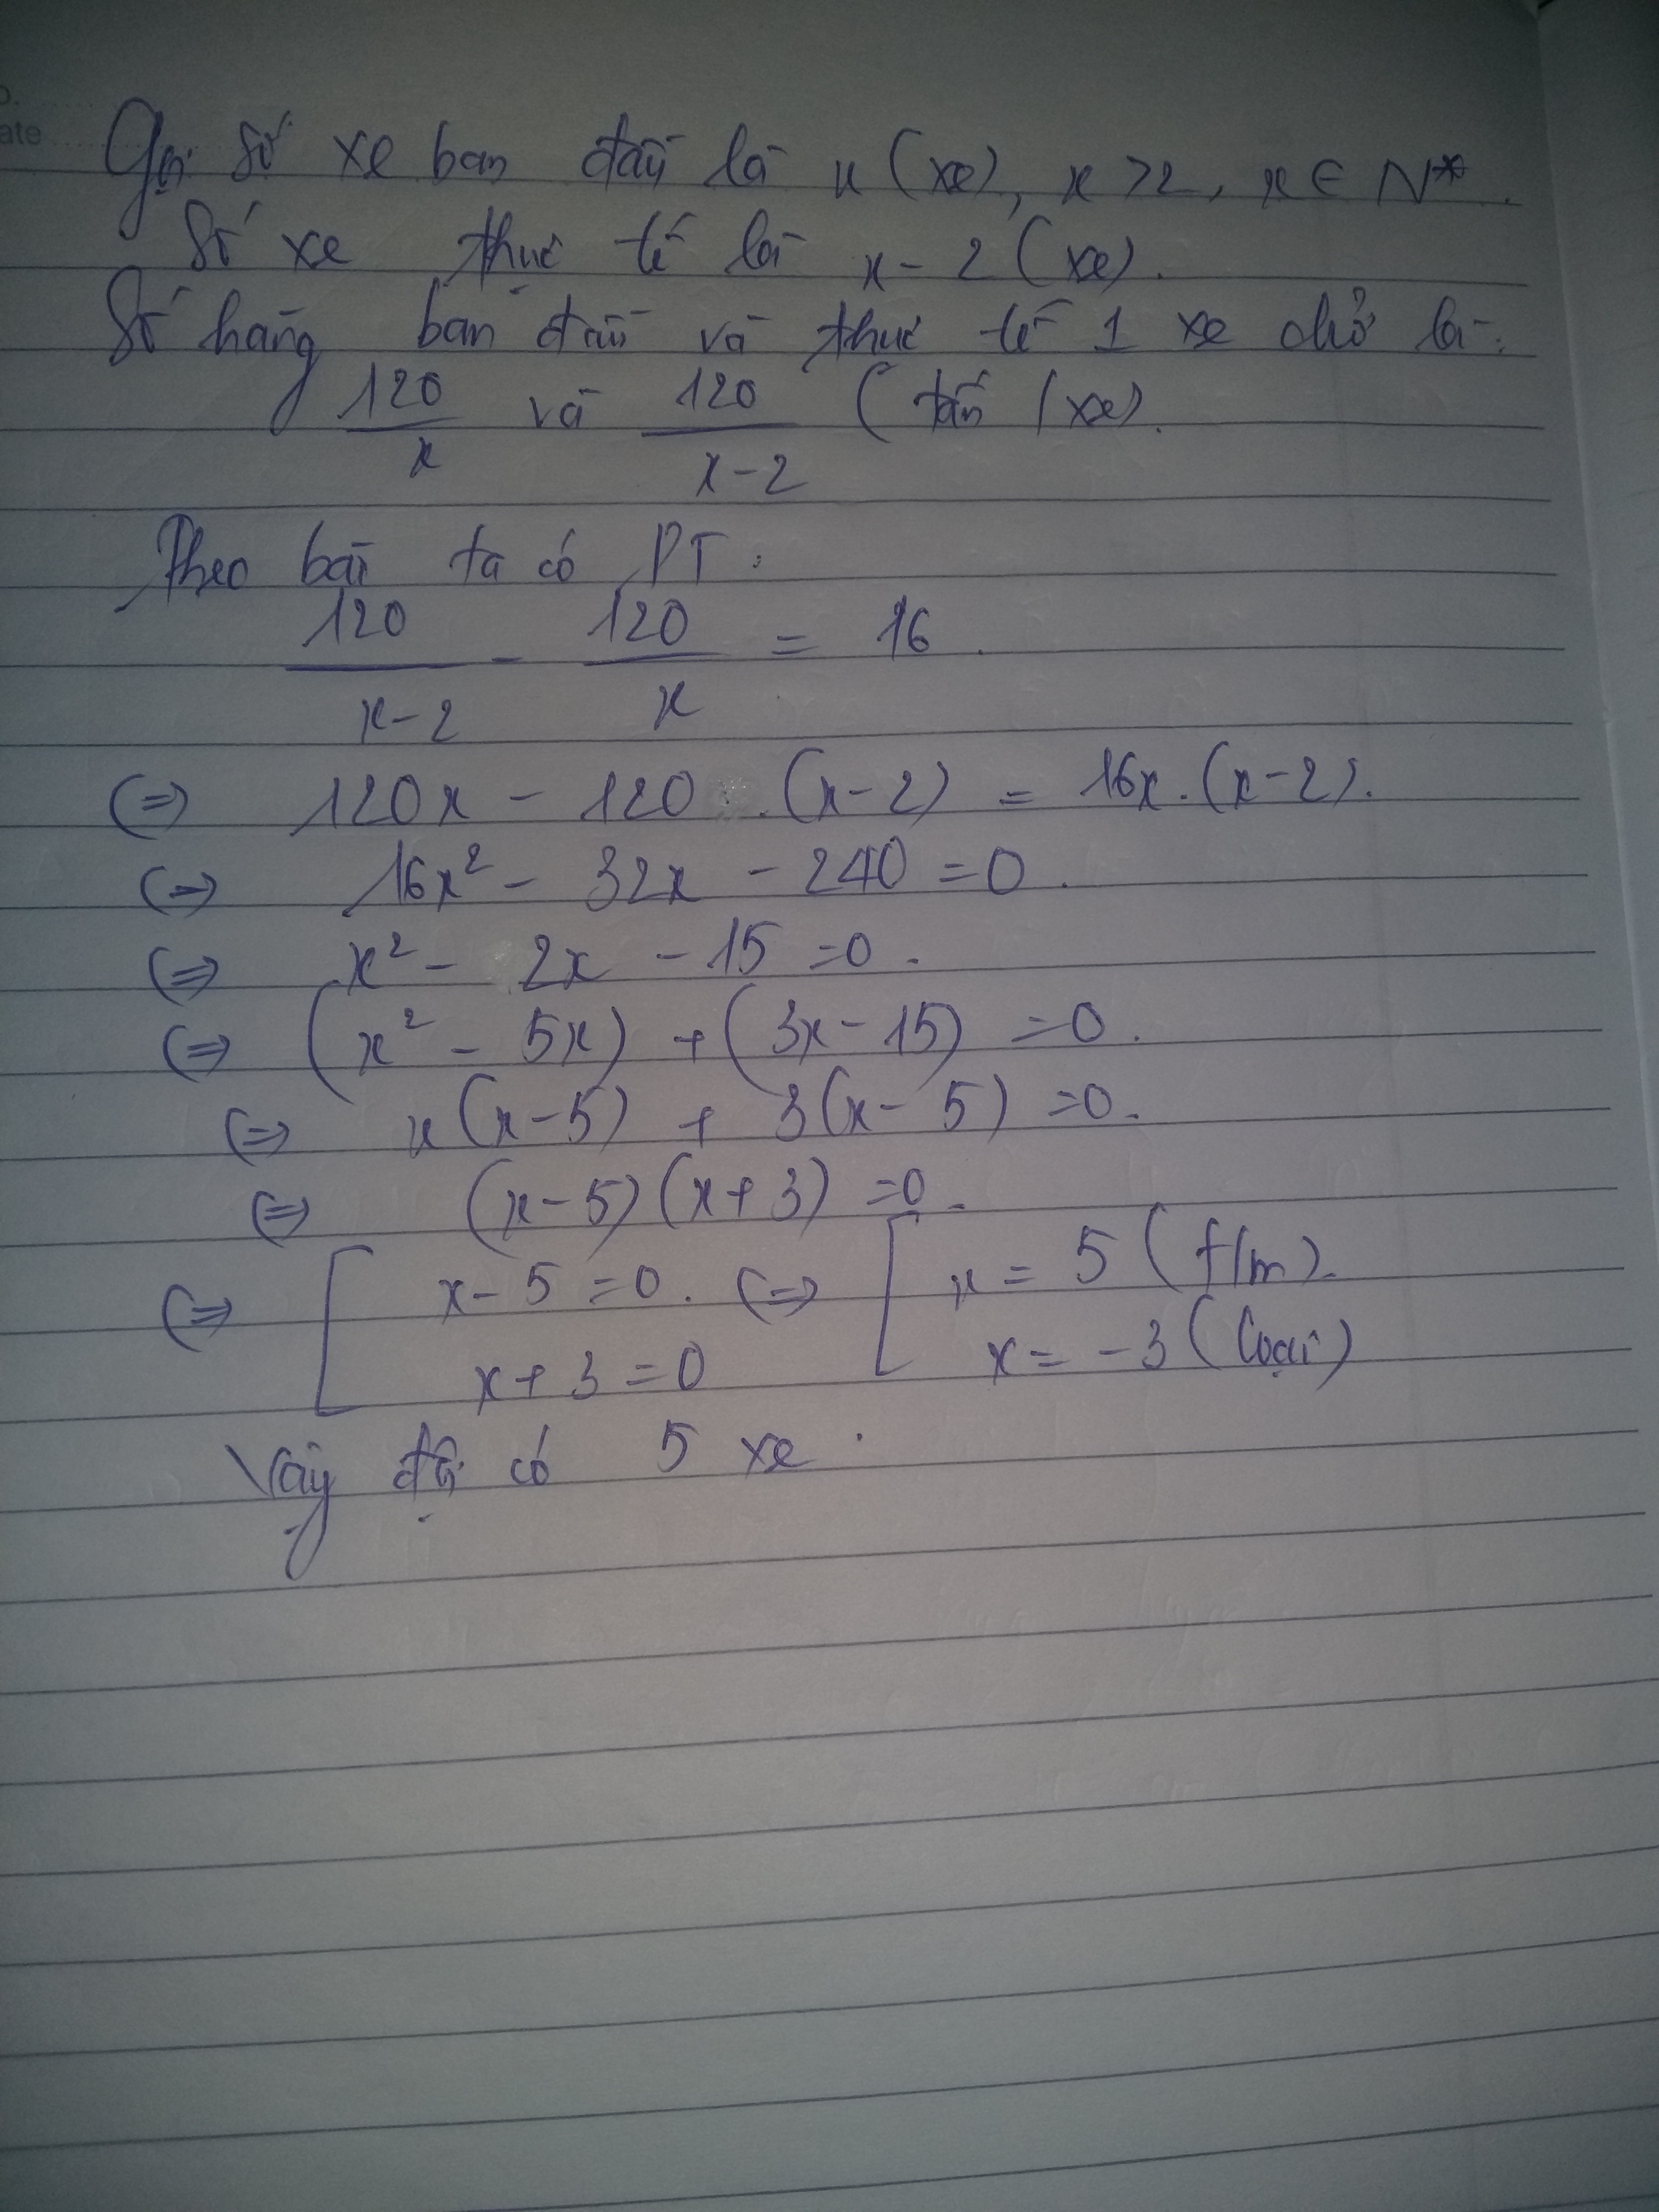 o.
ate
Gọi số xe ban đầu là x (xe), x > 2, x ∈ N*.
Số xe thực tế là x - 2 (xe).
Số hàng ban đầu và thực tế 1 xe chở là:
120/x và 120/(x-2) (tấn / xe).
Theo bài ta có PT:
120/(x-2) - 120/x = 16.
(=) 120x - 120 . (x-2) = 16x . (x-2).
(=) 16x² - 32x - 240 = 0.
(=) x² - 2x - 15 = 0.
(=) (x² - 5x) + (3x - 15) = 0.
(=) x(x-5) + 3(x-5) = 0.
(=) (x-5)(x+3) = 0.
(=) [ x - 5 = 0. (=) [ x = 5 (t/m).
x + 3 = 0 x = -3 (loại)
Vậy đội có 5 xe.